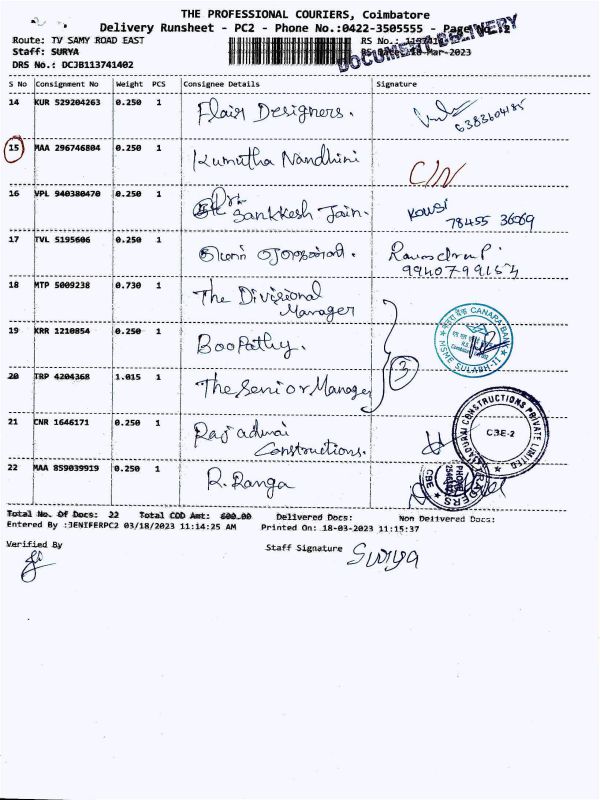 THE PROFESSIONAL COURIERS, Coimbatore
Delivery Runsheet - PC2 - Phone No.:0422-3505555 - Page No.
Route: TV SAMY ROAD EAST
RS No.:
Staff: SURYA
18-Mar-2023
DOCUMENT DELIVERY
DRS No.: DCJB113741402
S No Consignment No Weight PCS Consignee Details Signature
14 KUR 529204263 0.250 1 Flair Designers. 6383604185
15 MAA 296746804 0.250 1 Kumutha Nandhini C/N
16 VPL 940380470 0.250 1 Sankkesh Jain. Kowsi
78455 36069
17 TVL 5195606 0.250 1
18 MTP 5009238 0.730 1 The Divisional
Manager
19 KRR 1210854 0.250 1 Boopathy.
CANARA BANK
MSME SULABH-II
3
20 TRP 4204368 1.015 1 The Senior Manager
21 CNR 1646171 0.250 1 Raj aduvai
Constructions.
CONSTRUCTIONS PRIVATE LIMITED
CBE-2
22 MAA 859039919 0.250 1 R. Ranga
PHONE
CBE
Total No. Of Docs: 22 Total COD Amt: 600.00 Delivered Docs: Non Delivered Docs:
Entered By :JENIFERPC2 03/18/2023 11:14:25 AM Printed On: 18-03-2023 11:15:37
Verified By
Staff Signature Surya